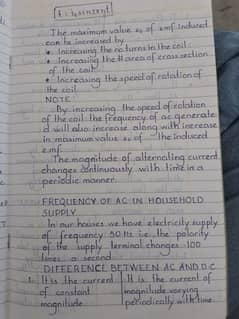 The maximum value e₀ of emf induced
can be increased by
• Increasing the no turns in the coil
• Increasing the area of cross section
of the coil
• Increasing the speed of rotation of
the coil
NOTE
By increasing the speed of rotation
of the coil the frequency of ac generate
d will also increase along with increase
in maximum value e₀ of the induced
e.mf.
The magnitude of alternating current
changes continuously with time in a
periodic manner.
FREQUENCY OF AC IN HOUSEHOLD
SUPPLY
In our houses we have electricity supply
of frequency 50 Hz i.e. the polarity
of the supply terminal changes 100
times a second
DIFFERENCE BETWEEN AC AND D.C
1. It is the current It is the current of
of constant magnitude varying
magnitude periodically with time.